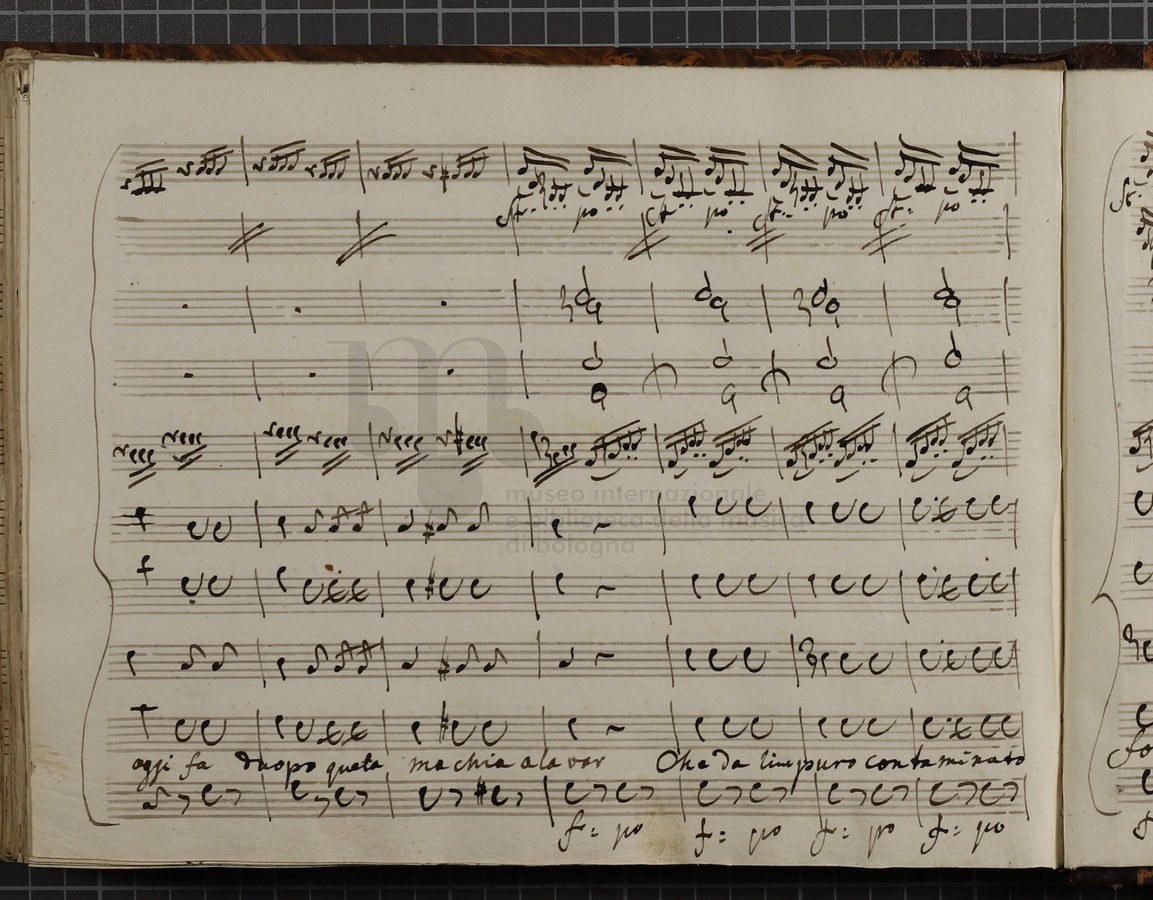 f: po f: po f: po f: po
m
museo internazionale
e biblioteca della musica
di bologna
oggi fa duopo questa machia a lavar Che da limpuro contaminato
f: po f: po f: po f: po